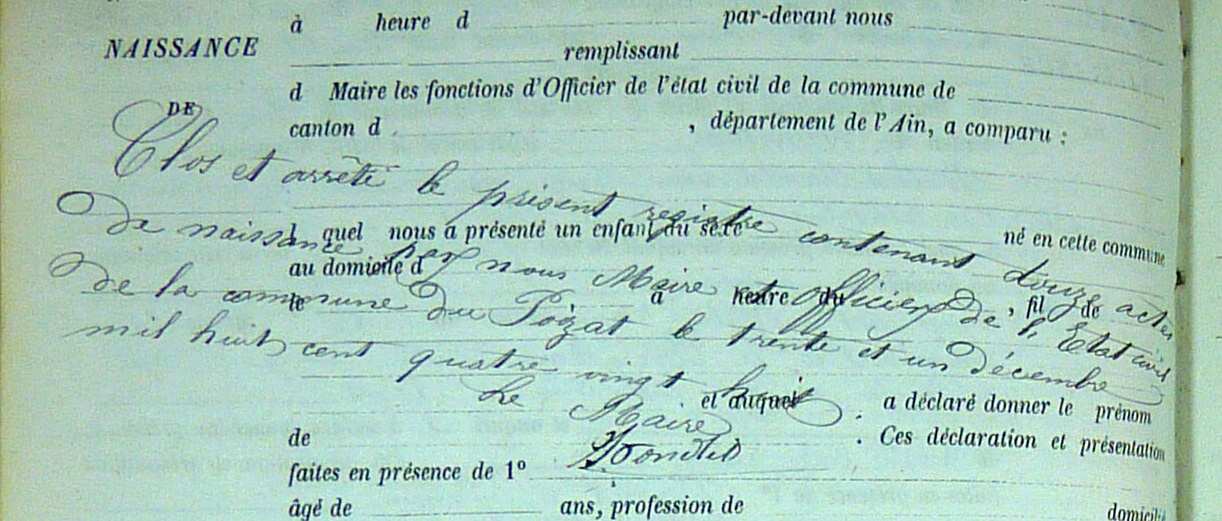 à heure d par-devant nous
NAISSANCE
remplissant
d Maire les fonctions d'Officier de l'état civil de la commune de
DE
canton d , département de l'Ain, a comparu :
Clos et arrêté le présent registre contenant douze actes
l quel nous a présenté un enfant du sexe né en cette commune
de naissance par nous Maire et officier de l'Etat civil
au domicile d
le à heure du , fil de
de la commune du Poizat le trente et un décembre
mil huit cent quatre vingt huit
et auquel a déclaré donner le prénom
Le Maire
de . Ces déclaration et présentation
faites en présence de 1º
âgé de ans, profession de domicilié